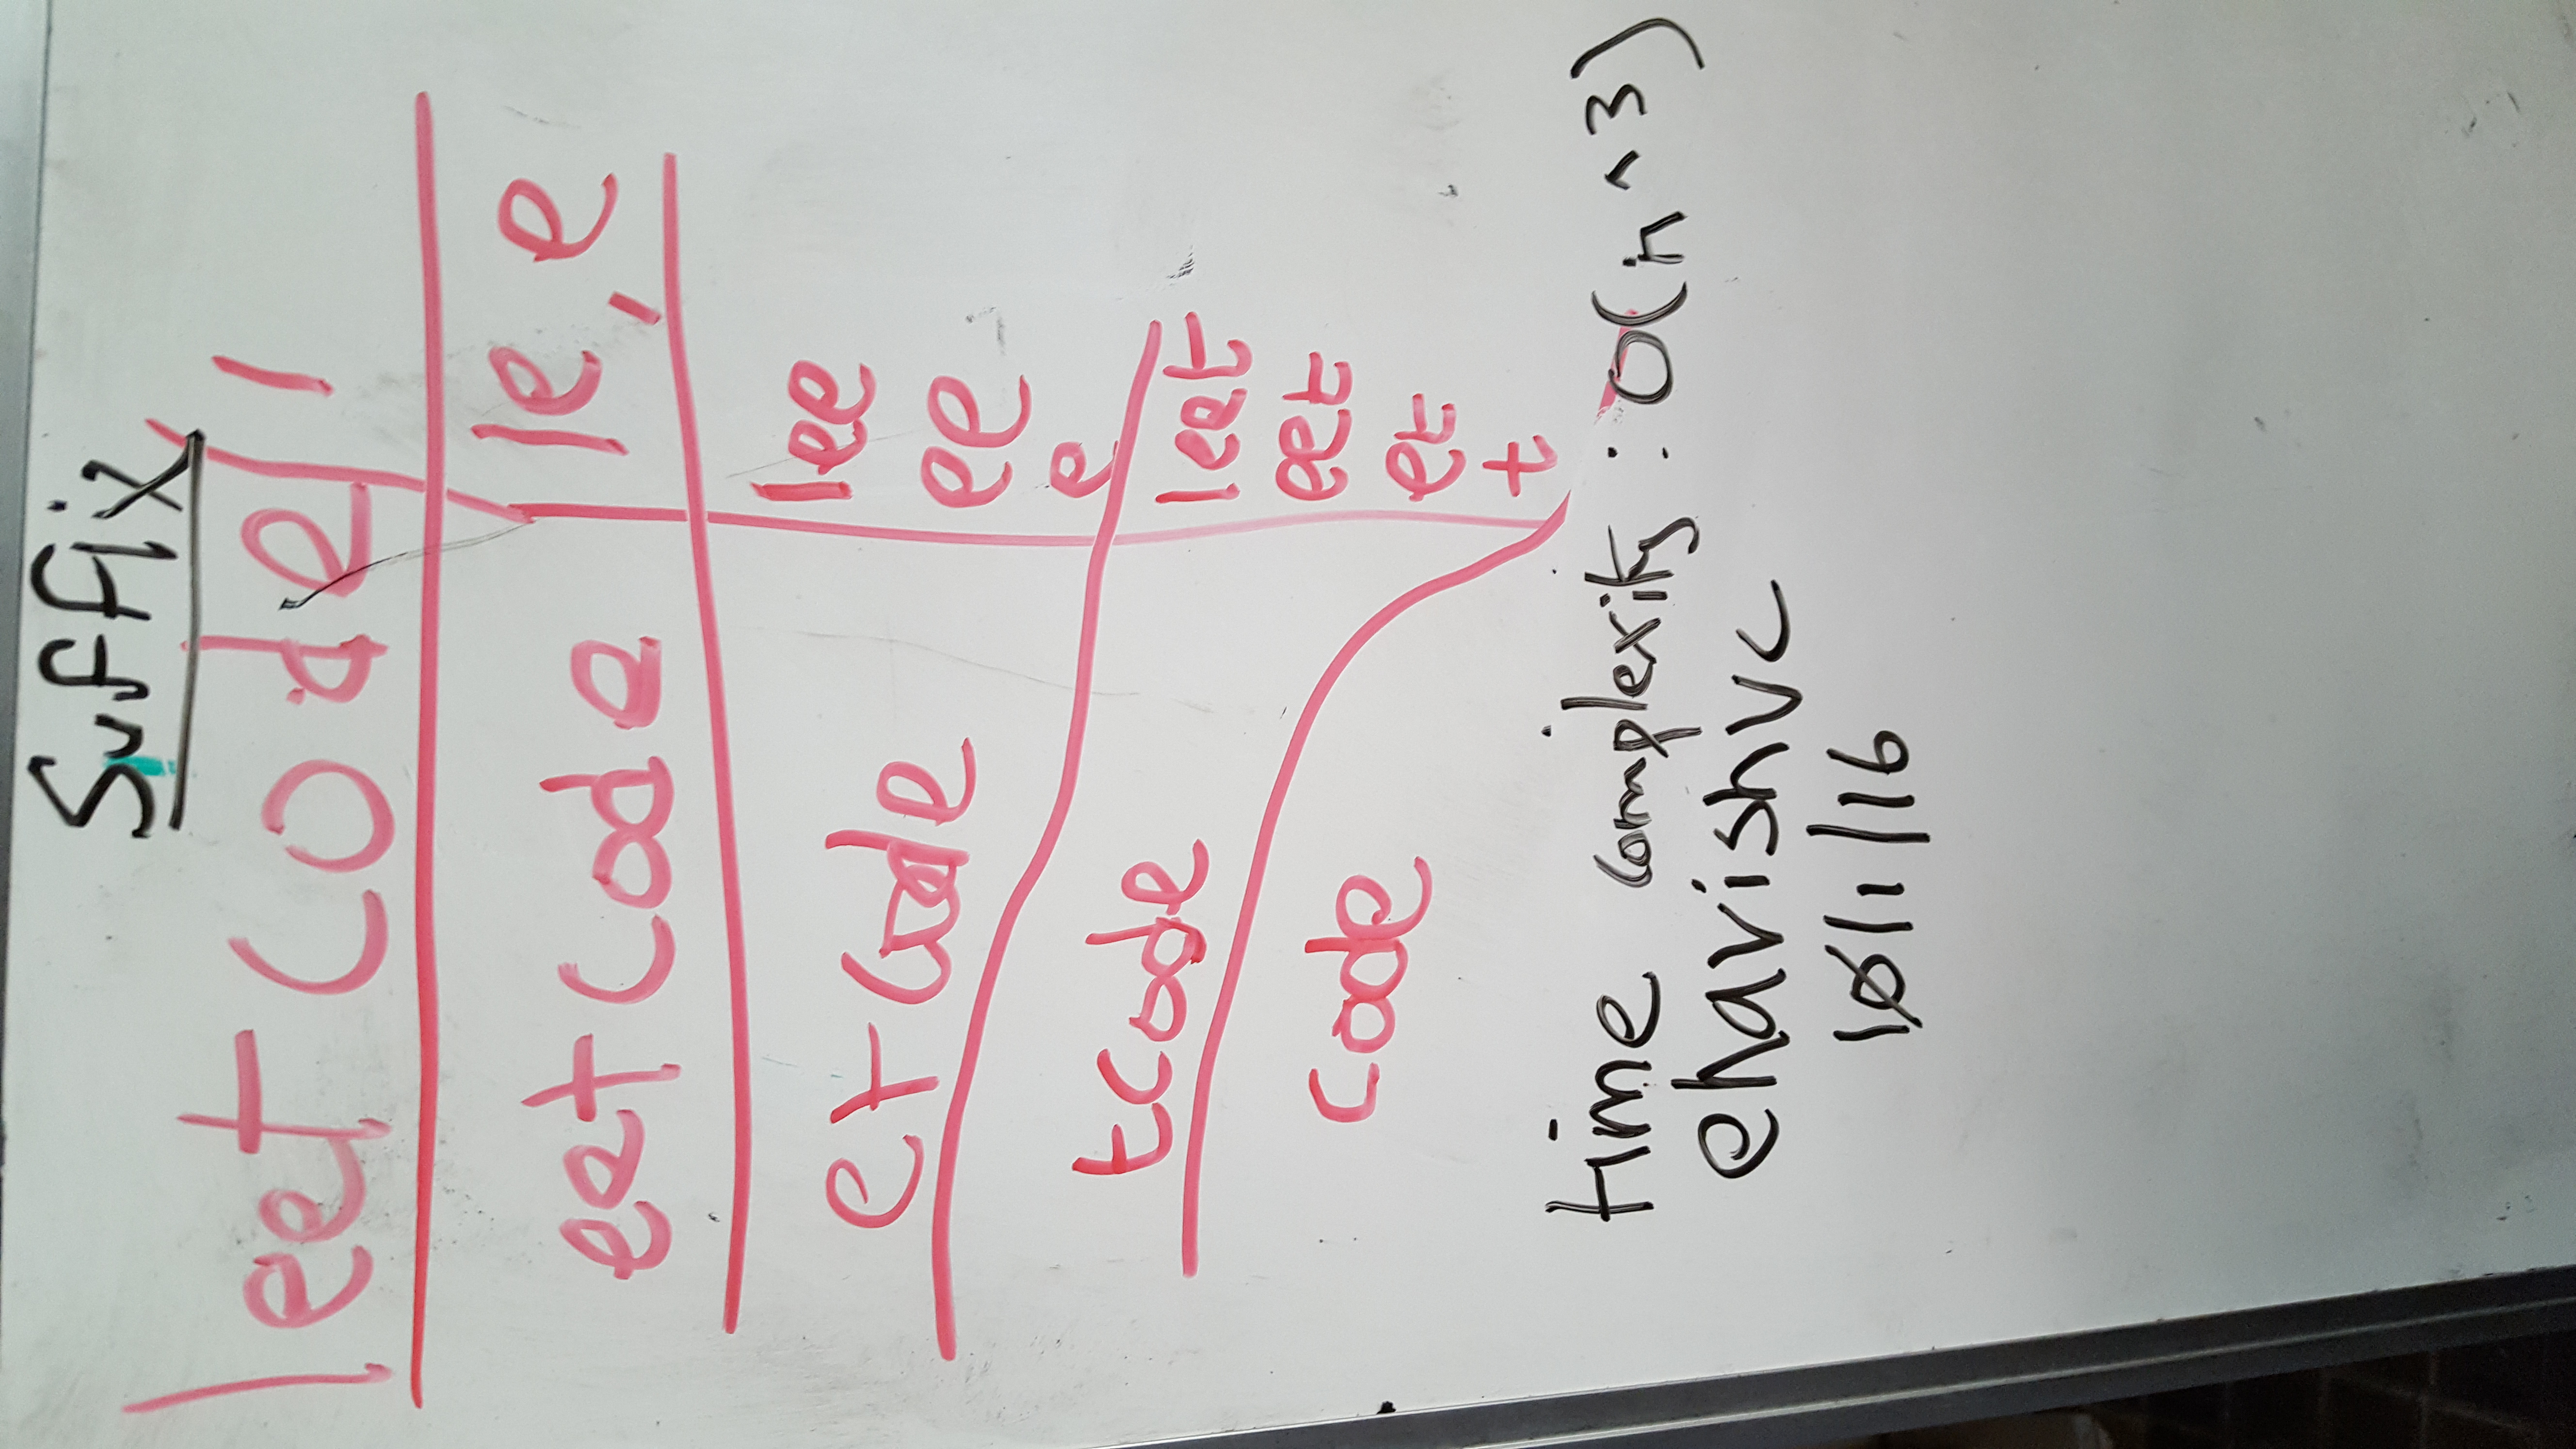 Suffix
leetcode l
eetcode le, e
etcode lee
ee
e
tcode leet
eet
et
t
code
time complexity : O(n^3)
ehavishvc
10/1/16